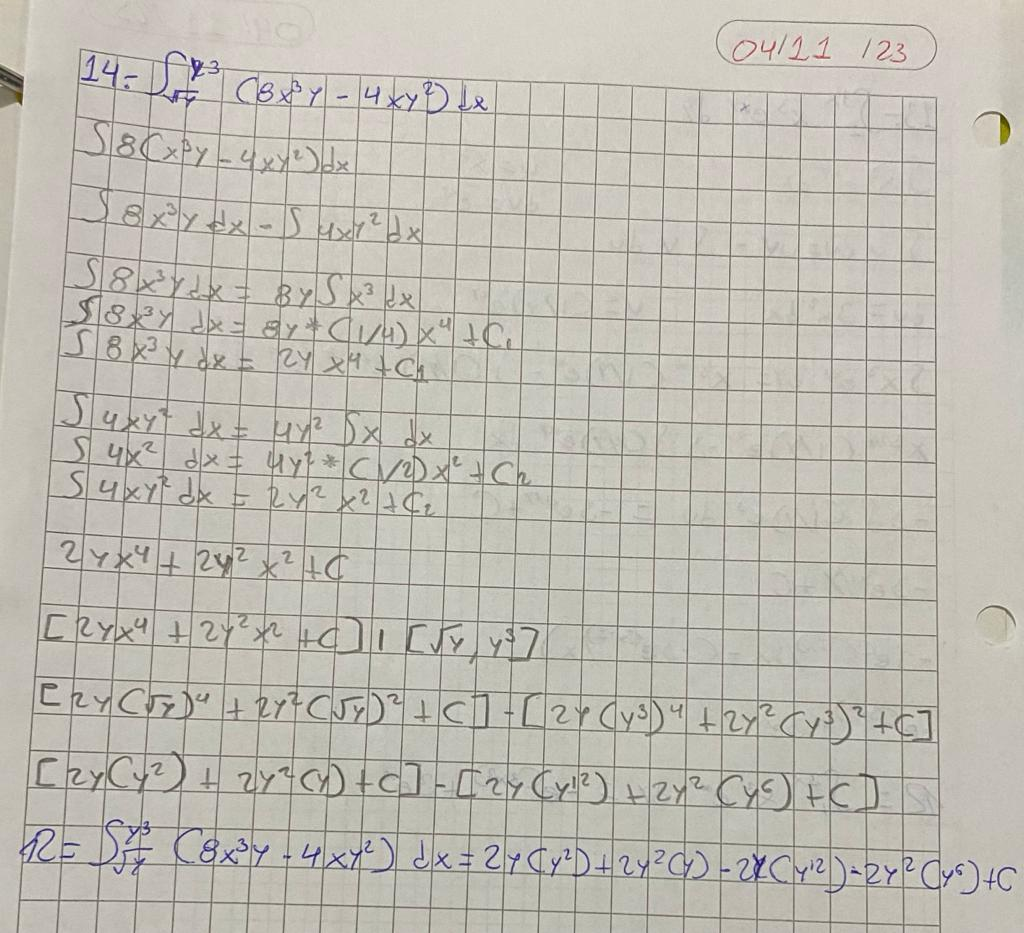 04/11 /23
14= ∫_√y^y³ (8x³y - 4xy²) dx
∫ 8(x³y - 4xy²)dx
∫ 8x³y dx - ∫ 4xy² dx
∫ 8x³y dx = 8y ∫ x³ dx
∫ 8x³y dx = 8y * (1/4) x⁴ + C₁
∫ 8x³y dx = 2y x⁴ + C₁
∫ 4xy² dx = 4y² ∫x dx
∫ 4x² dx = 4y² * (1/2) x² + C₂
∫ 4xy² dx = 2y² x² + C₂
2yx⁴ + 2y² x² + C
[2yx⁴ + 2y²x² + C] | [√y, y³]
[2y(√y)⁴ + 2y²(√y)² + C] - [2y(y³)⁴ + 2y²(y³)² + C]
[2y(y²) + 2y²(y) + C] - [2y(y¹²) + 2y²(y⁶) + C]
R= ∫_√y^y³ (8x³y - 4xy²) dx = 2y(y²) + 2y²(y) - 2y(y¹²) - 2y²(y⁶) + C